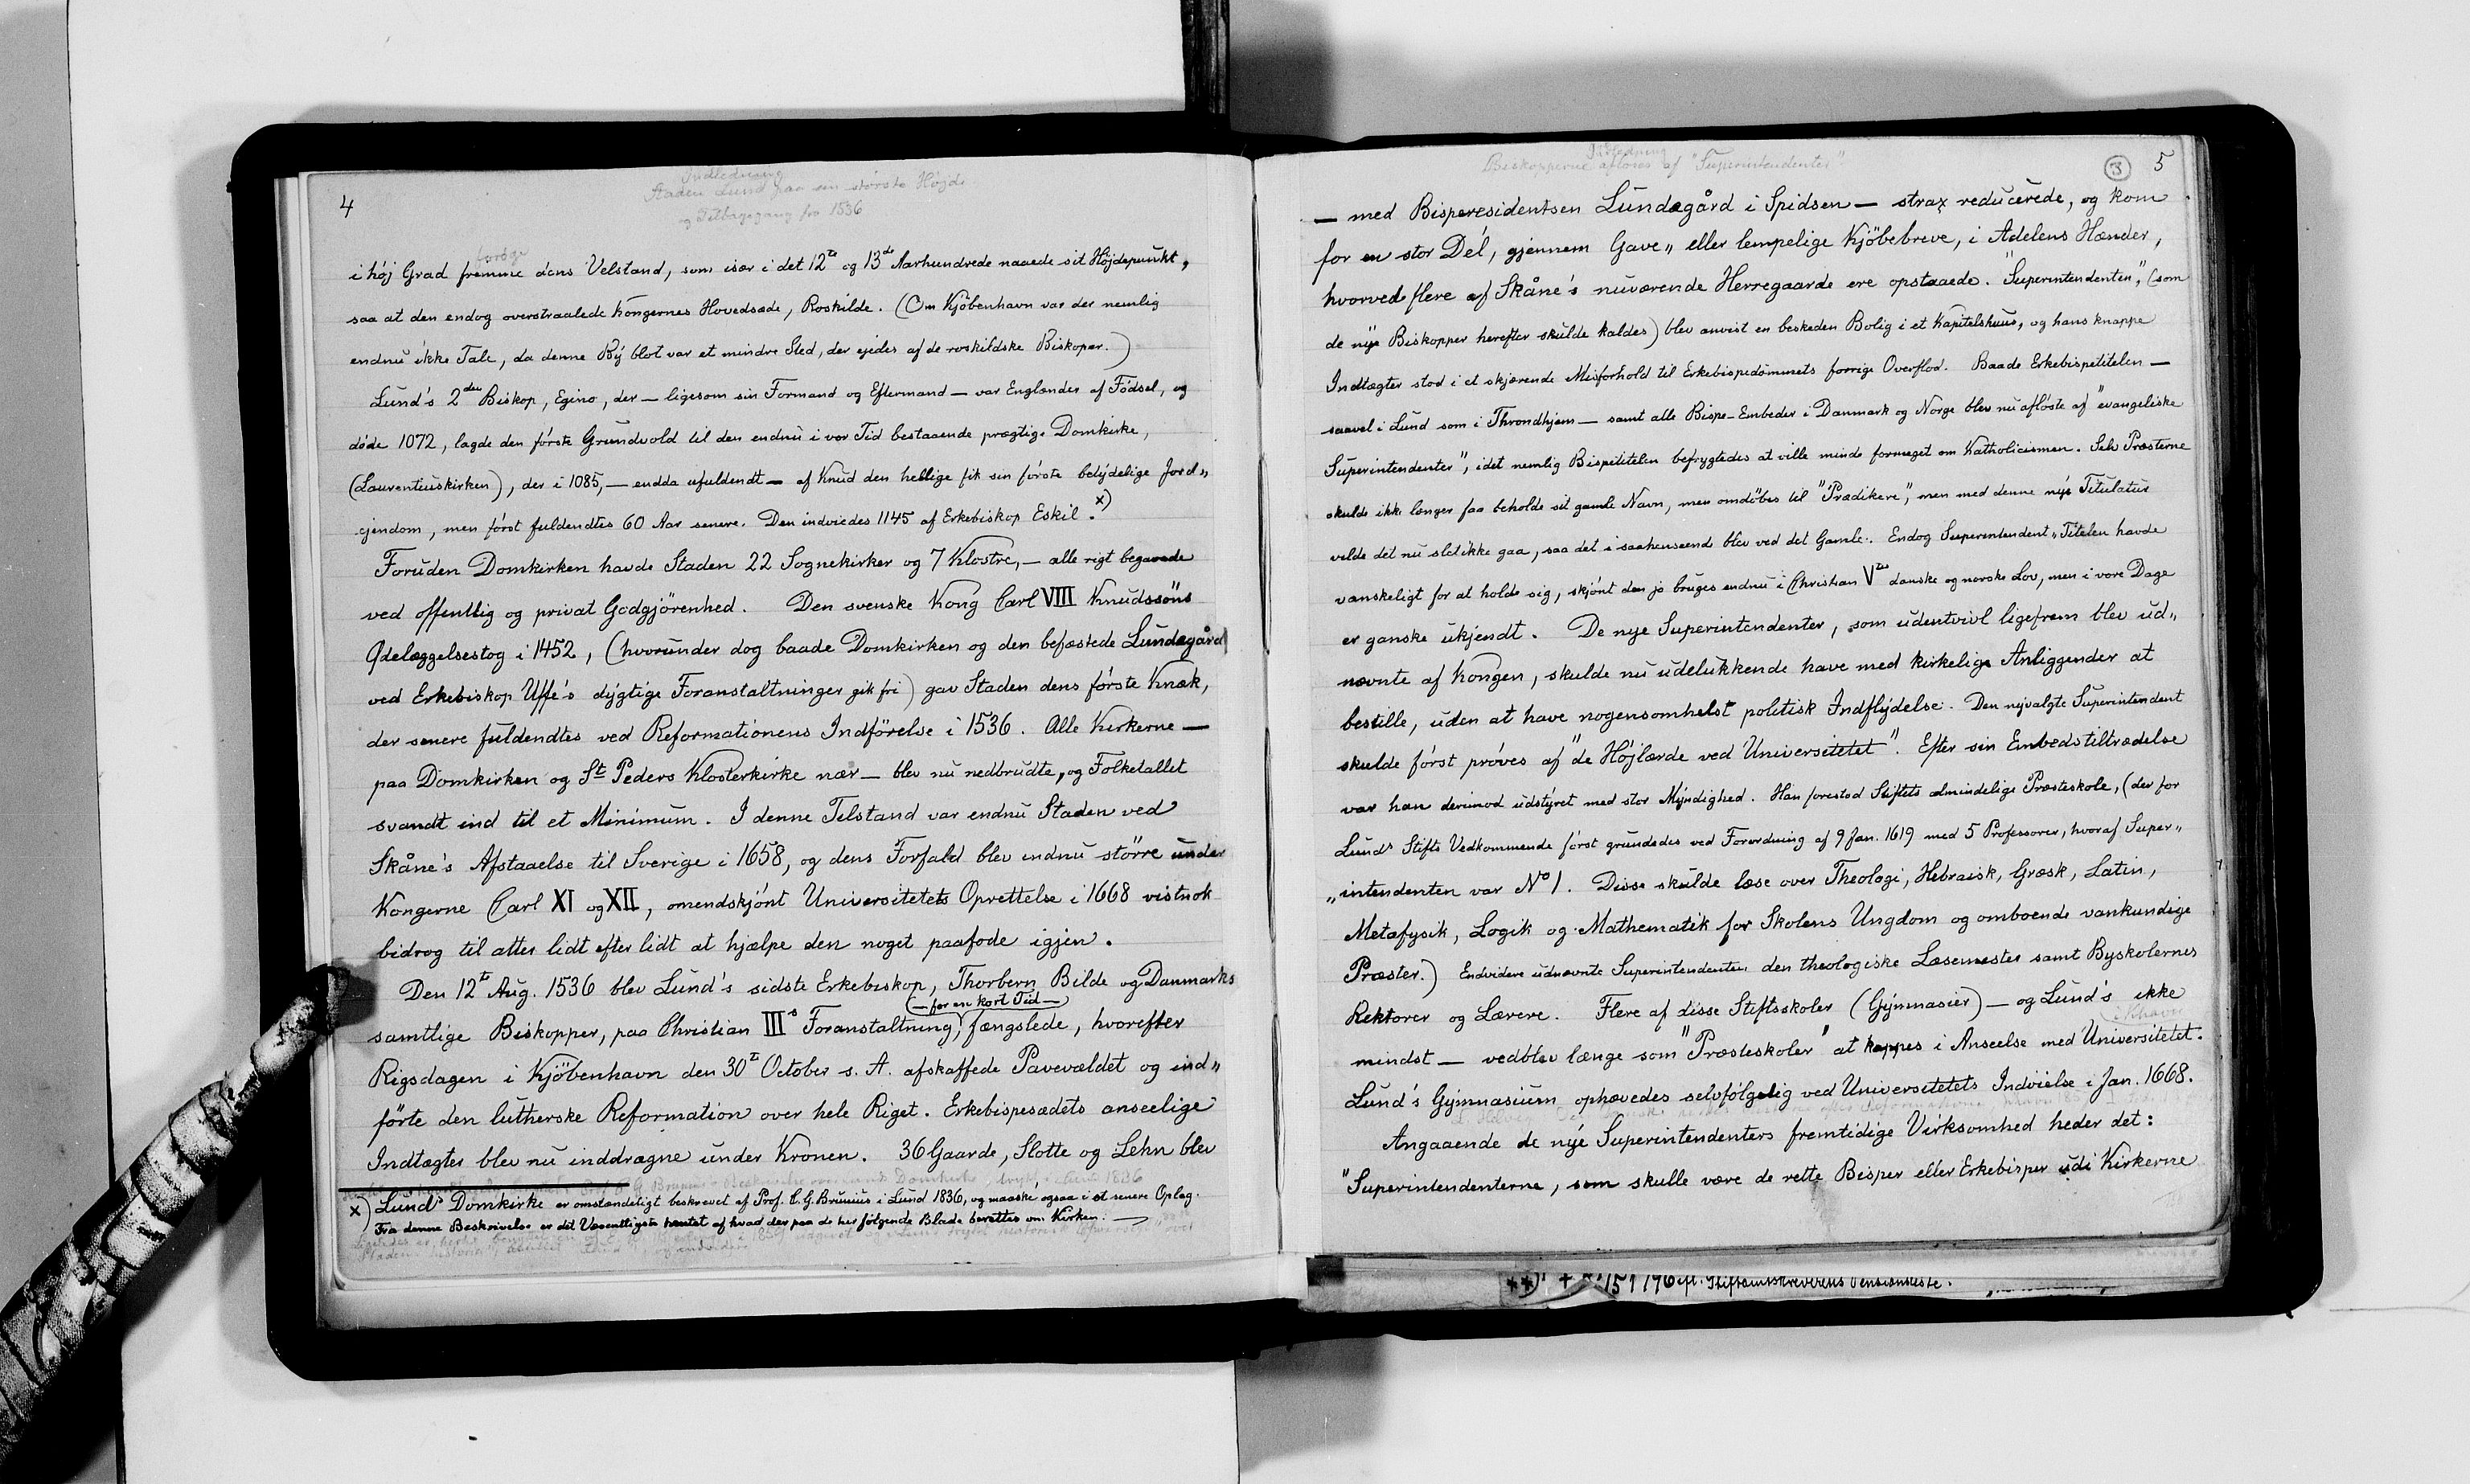 Indledning
Staden Lund paa sin største Højde
og Tilbagegang fra 1536
4
forøge
i høj Grad fremme dens Velstand, som især i det 12te og 13de Aarhundrede naaede sit Højdepunkt,
saa at den endog overstraalede Kongernes Hovedsæde, Roskilde. (Om Kjöbenhavn var der nemlig
endnu ikke Tale, da denne By blot var et mindre Sted, der ejedes af de roskildske Biskoper.)
Lund's 2den Biskop, Egino, der — ligesom sin Formand og Eftermand — var Englænder af Fødsel, og
døde 1072, lagde den første Grundvold til den endnu i vor Tid bestaaende prægtige Domkirke,
(Laurentiuskirken), der i 1085, — endda ufuldendt — af Knud den hellige fik sin første betydelige Jord„
ejendom, men først fuldendtes 60 Aar senere. Den indviedes 1145 af Erkebiskop Eskil. x)
Foruden Domkirken havde Staden 22 Sognekirker og 7 Klostre, — alle rigt begavede
ved offentlig og privat Godgjörenhed. Den svenske Kong Carl VIII Knudssöns
Ødelæggelsestog i 1452, (hvorunder dog baade Domkirken og den befæstede Lundagård
ved Erkebiskop Uffe's dygtige Foranstaltninger gik fri) gav Staden dens første Knæk,
der senere fuldendtes ved Reformationens Indförelse i 1536. Alle Kirkerne —
paa Domkirken og St Peders Klosterkirke nær — blev nu nedbrudte, og Folketallet
svandt ind til et Minimum. I denne Tilstand var endnu Staden ved
Skåne's Afstaaelse til Sverige i 1658, og dens Forfald blev endnu större under
Kongerne Carl XI og XII, omendskjønt Universitetets Oprettelse i 1668 vistnok
bidrog til atter lidt efter lidt at hjælpe den noget paafode igjen.
Den 12te Aug. 1536 blev Lund's sidste Erkebiskop, Thorbern Bilde og Danmarks
— for en kort Tid —
samtlige Biskopper, paa Christian IIIs Foranstaltning, fængslede, hvorefter
Rigsdagen i Kjöbenhavn den 30te October s. A. afskaffede Pavevældet og ind„
förte den lutherske Reformation over hele Riget. Erkebispesædets anseelige
Indtægter blev nu inddragne under Kronen. 36 Gaarde, Slotte og Lehn blev
x) Lunds Domkirke er omstændeligt beskrevet af Prof. C. G. Brunius i Lund 1836, og maaske ogsaa i et senere Oplag.
Fra denne Beskrivelse er det Væsentligste hentet af hvad der paa de her følgende Blade berettes om Kirken. —
Indledning
Biskopperne afløses af "Superintendenter"
3 5
— med Bisperesidentsen Lundagård i Spidsen — strax reducerede, og kom
for en stor Del, gjennem Gave„ eller lempelige Kjöbebreve, i Adelens Hænder,
hvorved flere af Skåne's nuværende Herregaarde ere opstaaede. "Superintendenten", (som
de nye Biskopper herefter skulde kaldes) blev anvist en beskeden Bolig i et Kapitelshuus, og hans knappe
Indtægter stod i et skjærende Misforhold til Erkebispedömmets forrige Overflod. Baade Erkebispetitelen —
saavel i Lund som i Throndhjem — samt alle Bispe-Embeder i Danmark og Norge blev nu afløste af "evangeliske
Superintendenter", idet nemlig Bispetitelen befrygtedes at ville minde formeget om Katholicismen. Selv Præsterne
skulde ikke længer faa beholde sit gamle Navn, men omdöbes til "Prædikere", men med denne nye Titulatur
vilde det nu slet ikke gaa, saa det i saahenseende blev ved det Gamle. Endog Superintendent„Titelen havde
vanskeligt for at holde sig, skjønt den jo bruges endnu i Christian Vtes danske og norske Lov, men i vore Dage
er ganske ukjendt. De nye Superintendenter, som udentvivl ligefrem blev ud„
nævnte af Kongen, skulde nu udelukkende have med kirkelige Anliggender at
bestille, uden at have nogensomhelst politisk Indflydelse. Den nyvalgte Superintendent
skulde først prøves af "de Højlærde ved Universitetet". Efter sin Embedstiltrædelse
var han derimod udstyret med stor Myndighed. Han forestod Stiftets almindelige Præsteskole, (der for
Lunds Stifts Vedkommende først grundedes ved Forordning af 9 Jan. 1619 med 5 Professorer, hvoraf Super„
„intendenten var No 1. Disse skulde læse over Theologi, Hebraisk, Græsk, Latin,
Metafysik, Logik og Mathematik for Skolens Ungdom og omboende vankundige
Præster.) Endvidere udnævnte Superintendenten den theologiske Læsemester samt Byskolernes
Rektorer og Lærere. Flere af disse Stiftsskoler (Gymnasier) — og Lund's ikke
i Khavn
mindst — vedblev længe som "Præsteskoler" at kappes i Anseelse med Universitetet.
Lund's Gymnasium ophævedes selvfölgelig ved Universitetets Indvielse i Jan. 1668.
Angaaende de nye Superintendenters fremtidige Virksomhed heder det:
"Superintendenterne, som skulle være de rette Bisper eller Erkebisper udi Kirkerne